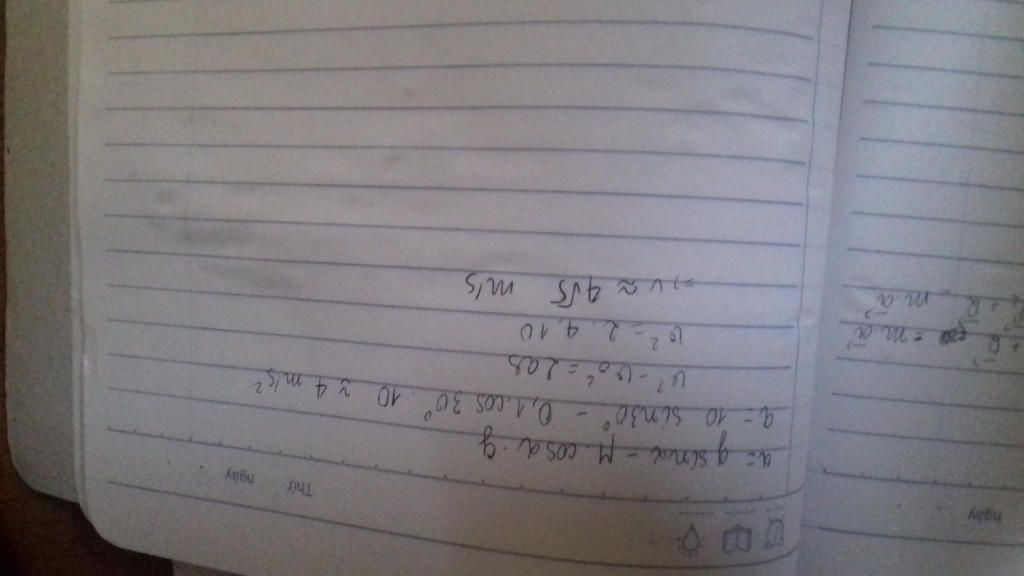 Thứ ngày
a = g sinα - μ. cosα . g
a = 10. sin30° - 0,1. cos 30° . 10 ≈ 4 m/s²
v² - v₀² = 2as
v² = 2. 4. 10
=> v ≈ 4√5 m/s
ngày
= m.a⃗
= m.a⃗